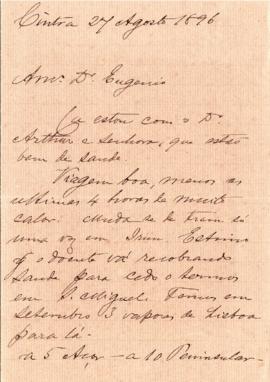 Cintra 27 Agosto 1896
Amº. Dr. Eugenio
Cá estou com o Dr.
Arthur e senhora, que estão
bem de saude.
Viagem boa, menos as
ultimas 4 horas de muito
calor. Muda-se de trem só
uma vez em Irun. Estimo
q o doente vá recobrando
saude para cedo o termos
em S. Miguel. Temos em
setembro 3 vapores de Lisboa
para lá.
a 5 Açor — a 10 Peninsular —